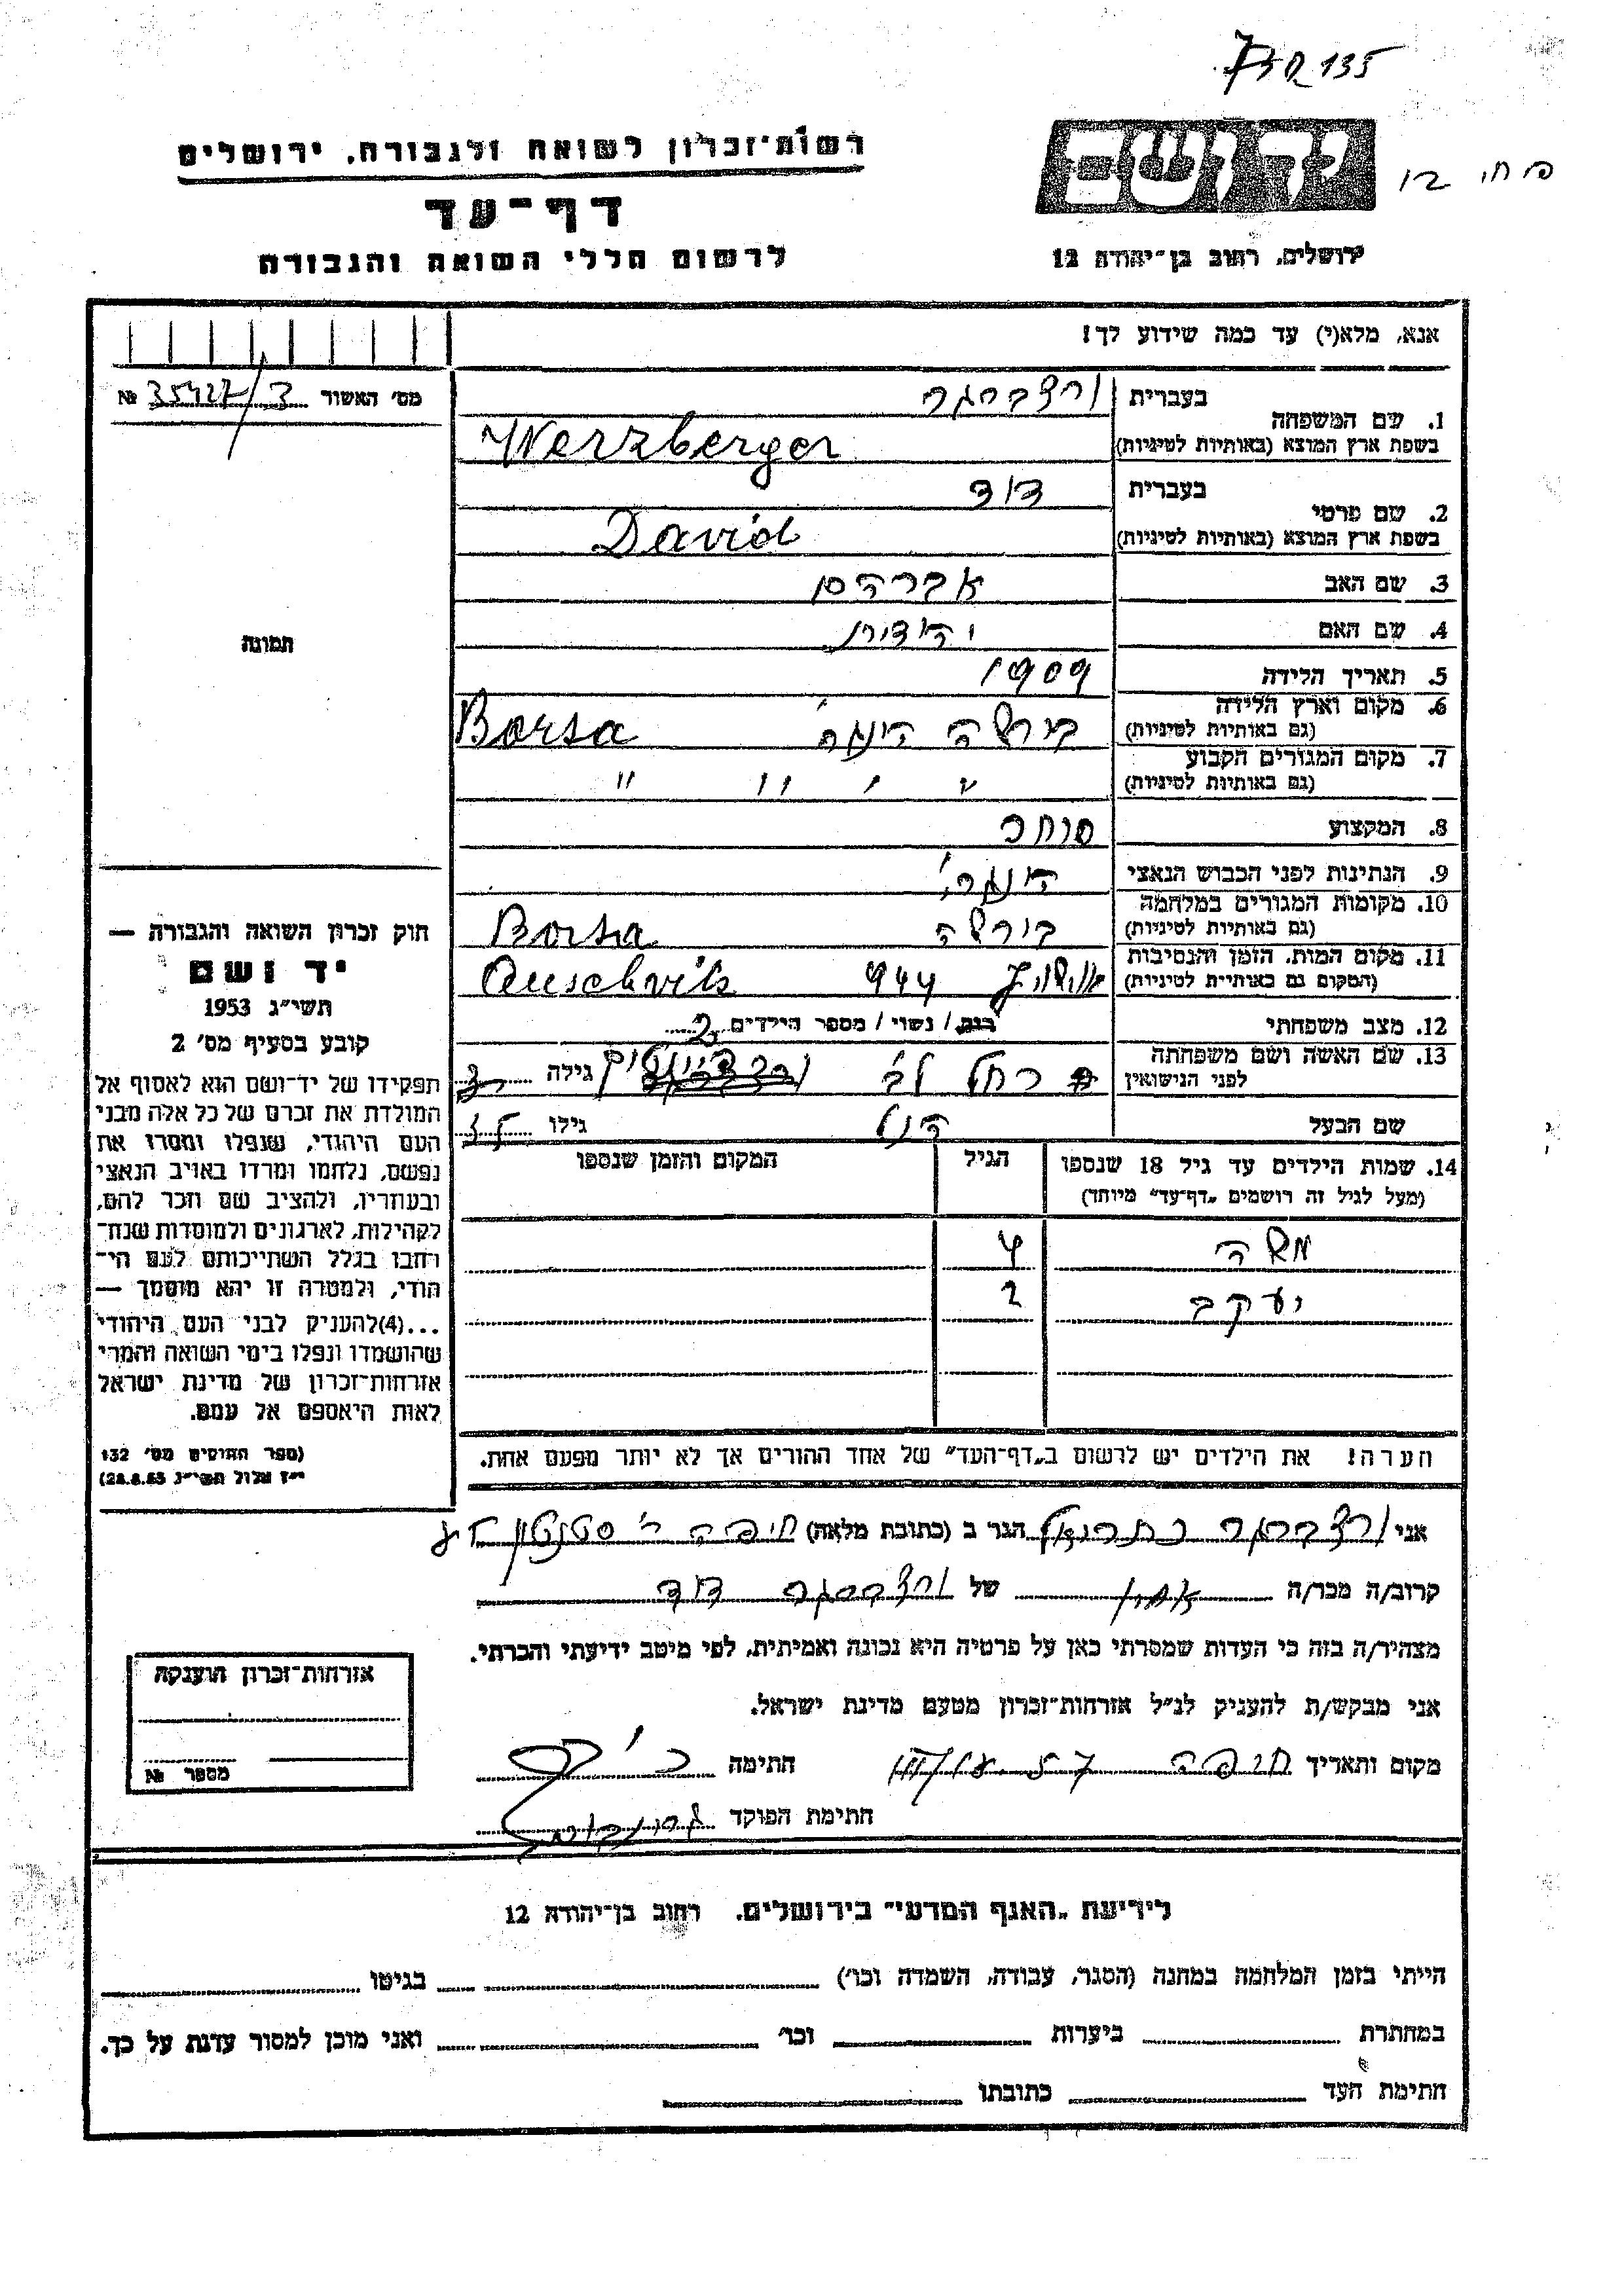 135
רשות־זכרון לשואה ולגבורה, ירושלים
יד ושם
דף־עד
לרשום חללי השואה והגבורה
ירושלים, רחוב בן־יהודה 12
אנא, מלא(י) עד כמה שידוע לך!
מס׳ האשור 35427/3 №
1. שם המשפחה
בעברית ורצברגר
בשפת ארץ המוצא (באותיות לטיניות) Werzberger
2. שם פרטי
בעברית דוד
בשפת ארץ המוצא (באותיות לטיניות) David
3. שם האב אברהם
4. שם האם יהודית
5. תאריך הלידה 1909
6. מקום וארץ הלידה בורשה הונגרי׳ Borsa
(גם באותיות לטיניות)
7. מקום המגורים הקבוע " " " "
(גם באותיות לטיניות)
8. המקצוע סוחר
9. הנתינות לפני הכבוש הנאצי הונגרי׳
10. מקומות המגורים במלחמה בורשה Borsa
(גם באותיות לטיניות)
11. מקום המות, הזמן והנסיבות אושויץ 944 Auschvits
(המקום גם באותיות לטיניות)
12. מצב משפחתי רווק / נשוי / מספר הילדים 2
13. שם האשה ושם משפחתה רחל לב גילה
לפני הנישואין
שם הבעל הנ״ל גילו 35
14. שמות הילדים עד גיל 18 שנספו הגיל המקום והזמן שנספו
(מעל לגיל זה רושמים „דף־עד״ מיוחד)
משה 4
יעקב 2
הערה! את הילדים יש לרשום ב„דף־העד״ של אחד ההורים אך לא יותר מפעם אחת.
תמונה
חוק זכרון השואה והגבורה —
יד ושם
תשי״ג 1953
קובע בסעיף מס׳ 2
תפקידו של יד־ושם הוא לאסוף אל
המולדת את זכרם של כל אלה מבני
העם היהודי, שנפלו ומסרו את
נפשם, נלחמו ומרדו באויב הנאצי
ובעוזריו, ולהציב שם וזכר להם,
לקהילות, לארגונים ולמוסדות שנח־
רבו בגלל השתייכותם לעם הי־
הודי, ולמטרה זו יהא מוסמך —
...(4)להעניק לבני העם היהודי
שהושמדו ונפלו בימי השואה והמרי
אזרחות־זכרון של מדינת ישראל
לאות היאספם אל עמם.
(ספר החוקים מס׳ 132
י״ז אלול תשי״ג 28.8.53)
אני ורצברגר נתנאל הגר ב (כתובת מלאה) חיפה ר׳ סטנטון
קרוב/ה מכר/ה אחיו של ורצברגר דוד
מצהיר/ה בזה כי העדות שמסרתי כאן על פרטיה היא נכונה ואמיתית, לפי מיטב ידיעתי והכרתי.
אני מבקש/ת להעניק לנ״ל אזרחות־זכרון מטעם מדינת ישראל.
מקום ותאריך חיפה חתימה
חתימת הפוקד
אזרחות־זכרון הוענקה
מספר №
לידיעת „האגף המדעי״ בירושלים. רחוב בן־יהודה 12
הייתי בזמן המלחמה במחנה (הסגר, עבודה, השמדה וכו׳) בגיטו
במחתרת ביערות וכו׳ ואני מוכן למסור עדות על כך.
חתימת העד כתובתו